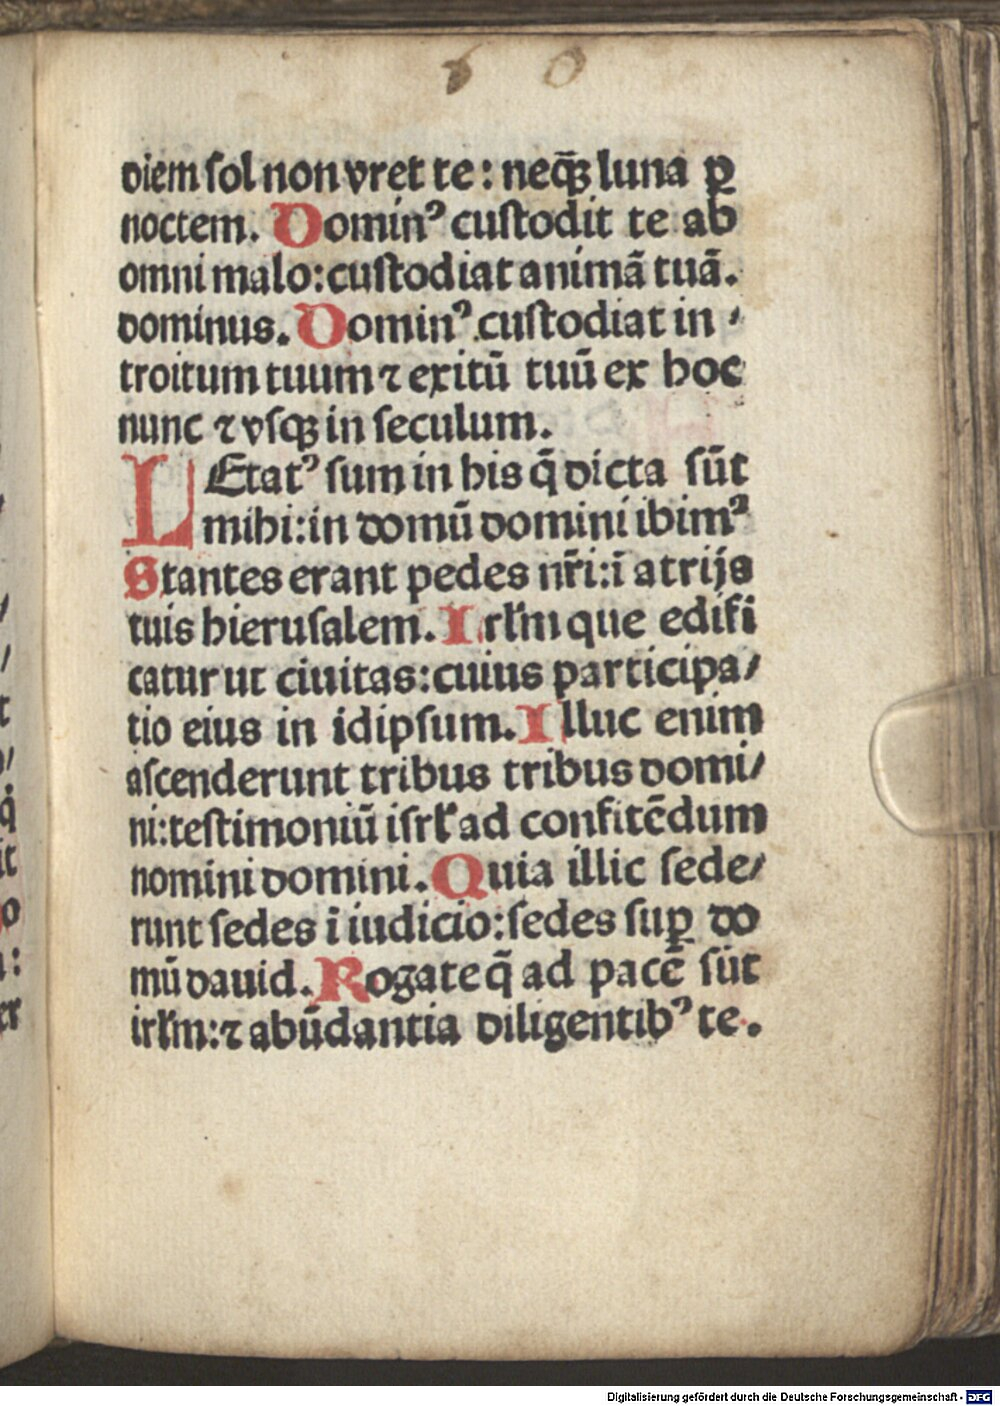 6 0
diem sol non vret te: neqꝫ luna ꝑ
noctem. Dominꝰ custodit te ab
omni malo: custodiat animā tuā.
dominus. Dominꝰ custodiat in⸗
troitum tuum ⁊ exitū tuū ex hoc
nunc ⁊ vsqꝫ in seculum.
LEtatꝰ sum in his q̄ dicta sūt
mihi: in domū domini ibimꝰ
Stantes erant pedes nr̄i: ī atrijs
tuis hierusalem. Irłm que edifi
catur ut ciuitas: cuius participa/
tio eius in idipsum. Illuc enim
ascenderunt tribus tribus domi/
ni: testimoniū isrł ad confitēdum
nomini domini. Quia illic sede/
runt sedes ī iudicio: sedes suꝑ do
mū dauid. Rogate q̄ ad pacē sūt
irłm: ⁊ abūdantia diligentibꝰ te.
Digitalisierung gefördert durch die Deutsche Forschungsgemeinschaft - DFG